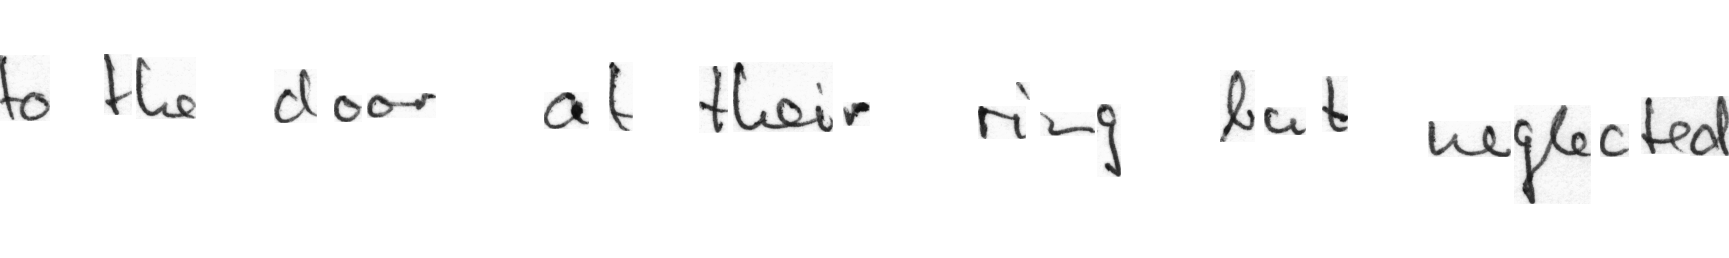 to the door at their ring but neglected